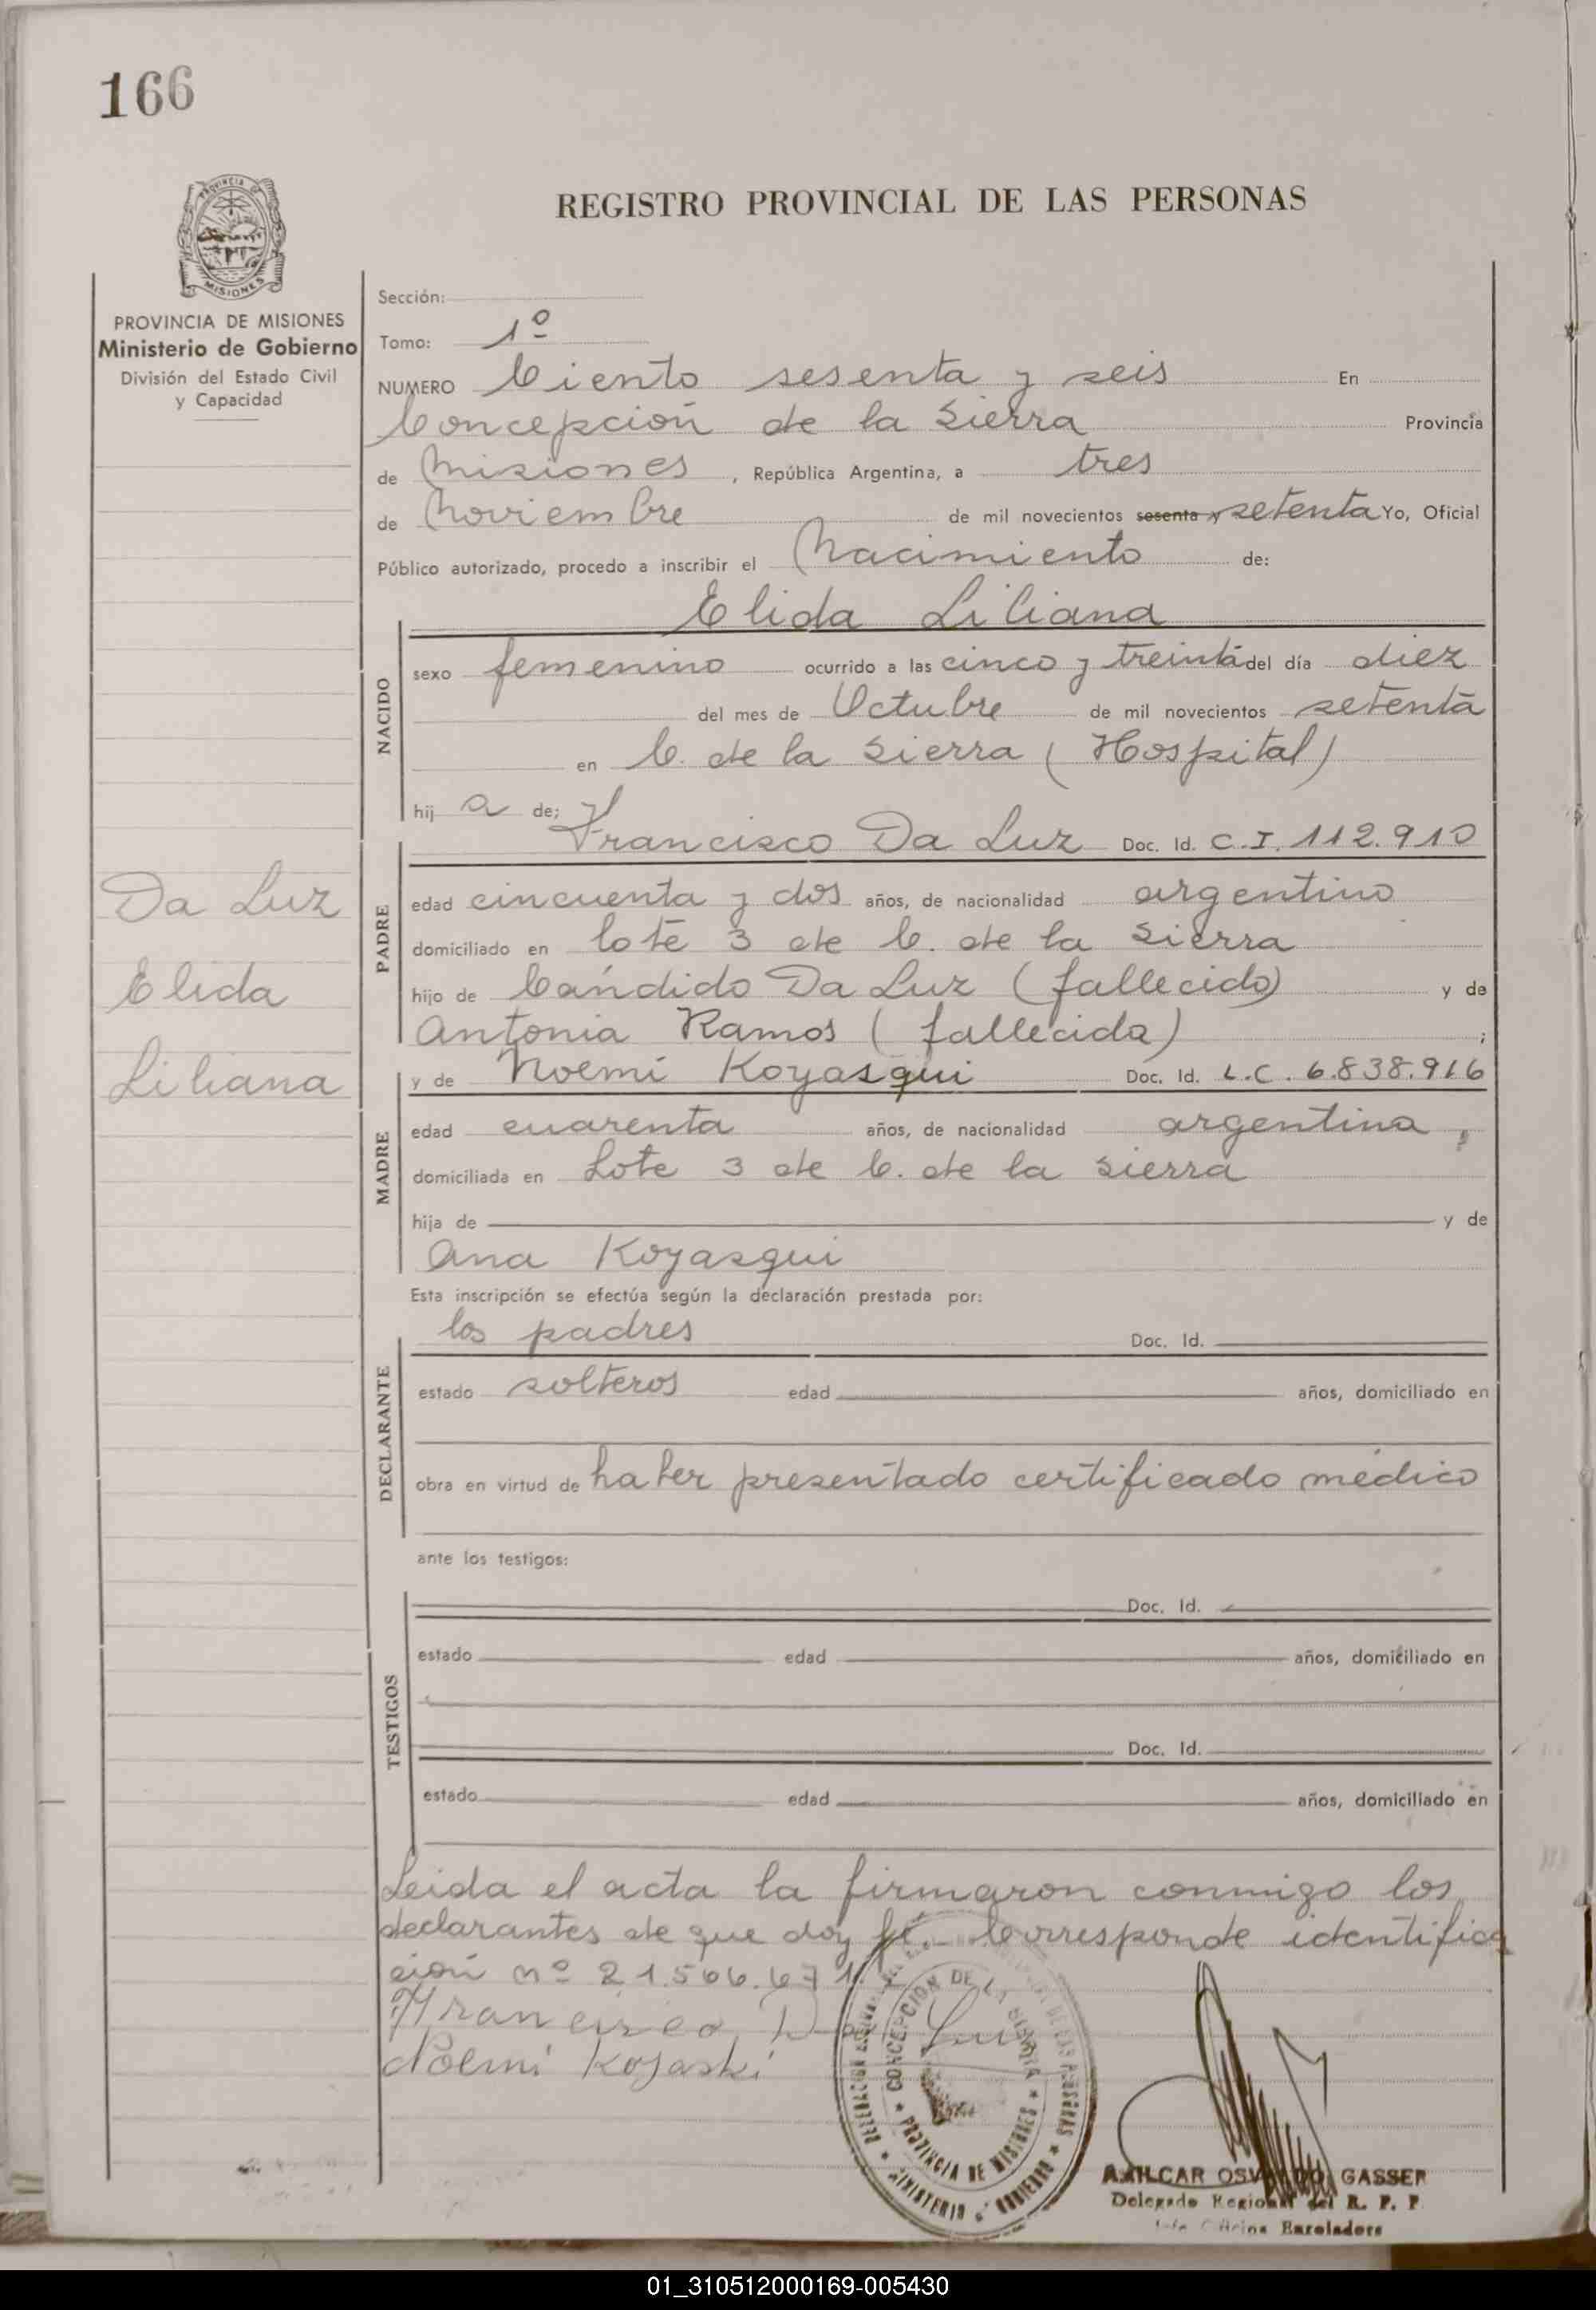 166
PROVINCIA DE
MISIONES
REGISTRO PROVINCIAL DE LAS PERSONAS
PROVINCIA DE MISIONES
Ministerio de Gobierno
División del Estado Civil
y Capacidad
Da Luz
Elida
Liliana
Sección:
Tomo: 1º
NUMERO Ciento sesenta y seis En
Concepción de la Sierra Provincia
de Misiones, República Argentina, a tres
de Noviembre de mil novecientos sesenta y setenta Yo, Oficial
Público autorizado, procedo a inscribir el Nacimiento de:
Elida Liliana
NACIDO
sexo femenino ocurrido a las cinco y treinta del día diez
del mes de Octubre de mil novecientos setenta
en C. de la Sierra (Hospital)
hij a de;
PADRE
Francisco Da Luz Doc. Id. C.I. 112.910
edad cincuenta y dos años, de nacionalidad argentino
domiciliado en lote 3 de C. de la Sierra
hijo de Cándido Da Luz (fallecido) y de
Antonia Ramos (fallecida) ;
MADRE
y de Noemí Koyasqui Doc. Id. L.C. 6.838.916
edad cuarenta años, de nacionalidad argentina,
domiciliada en Lote 3 de C. de la Sierra
hija de y de
Ana Koyasqui
Esta inscripción se efectúa según la declaración prestada por:
DECLARANTE
los padres Doc. Id.
estado solteros edad años, domiciliado en
obra en virtud de haber presentado certificado médico
ante los testigos:
TESTIGOS
Doc. Id.
estado edad años, domiciliado en
Doc. Id.
estado edad años, domiciliado en
Leida el acta la firmaron conmigo los
declarantes de que doy fé. Corresponde identifica
ción nº 21.506.671
Francisco Da Luz
Noemi Koyaski
CONCEPCION DE LA SIERRA
PROVINCIA DE MISIONES
MINISTERIO GOBIERNO
AMILCAR OSVALDO GASSER
Delegado Regional del R. P. P
Jefe Oficina Enroladora
01_310512000169-005430